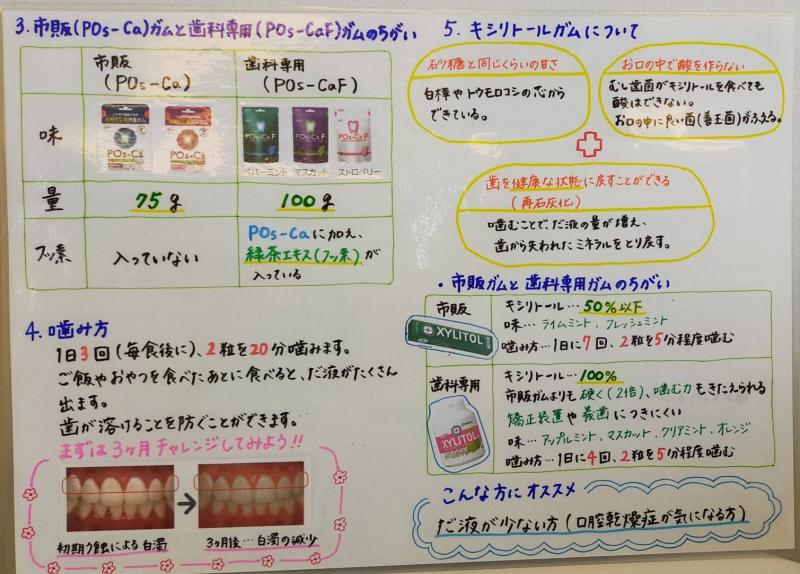 3. 市販(POs-Ca)ガムと歯科専用(POs-CaF)ガムのちがい
市販
(POs-Ca)
歯科専用
(POs-CaF)
味
POs-Ca
POs-Ca
POs-CaF
POs-CaF
POs-CaF
ペパーミント
マスカット
ストロベリー
量
75g
100g
フッ素
入っていない
POs-Caに加え、
緑茶エキス(フッ素)が
入っている
4. 噛み方
1日3回(毎食後に)、2粒を20分噛みます。
ご飯やおやつを食べたあとに食べると、だ液がたくさん
出ます。
歯が溶けることを防ぐことができます。
まずは3ヶ月チャレンジしてみよう!!
初期う蝕による白濁
3ヶ月後…白濁の減少
5. キシリトールガムについて
砂糖と同じくらいの甘さ
白樺やトウモロコシの芯から
できている。
お口の中で酸を作らない
むし歯菌がキシリトールを食べても
酸はできない。
お口の中に良い菌(善玉菌)がふえる。
歯を健康な状態に戻すことができる
(再石灰化)
噛むことでだ液の量が増え、
歯から失われたミネラルをとり戻す。
・市販ガムと歯科専用ガムのちがい
市販
XYLITOL
キシリトール…50%以下
味…ライムミント、フレッシュミント
噛み方…1日に7回、2粒を5分程度噛む
歯科専用
XYLITOL
キシリトール…100%
市販ガムよりも硬く(2倍)、噛む力もきたえられる
矯正装置や義歯につきにくい
味…アップルミント、マスカット、クリアミント、オレンジ
噛み方…1日に4回、2粒を5分程度噛む
こんな方にオススメ
だ液が少ない方(口腔乾燥症が気になる方)